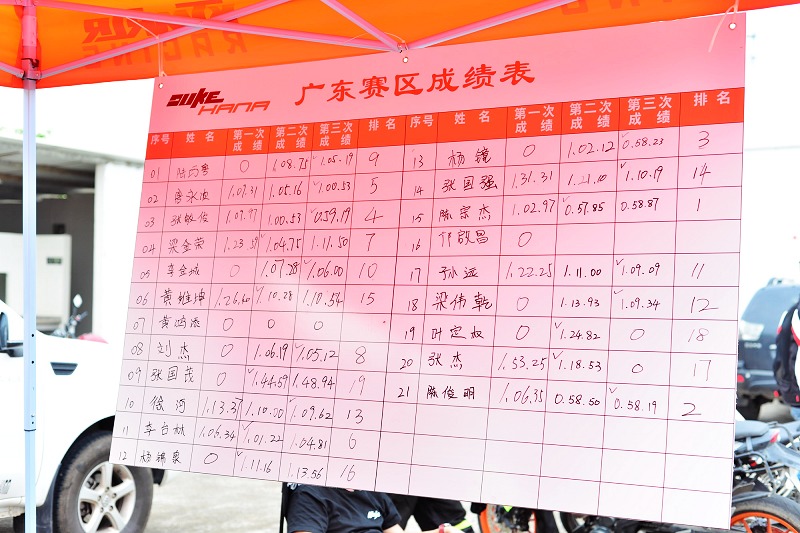 RACING
DUKE HANA 广东赛区成绩表
序号 姓名 第一次成绩 第二次成绩 第三次成绩 排名 序号 姓名 第一次成绩 第二次成绩 第三次成绩 排名
01 0 1.08.75 √1.05.19 9 13 杨镜 0 1.02.12 √0.58.23 3
02 1.07.31 1.05.16 √1.00.53 5 14 张国强 1.31.31 1.21.10 √1.10.19 14
03 张敏俊 1.07.97 1.00.53 √0.59.19 4 15 陈宗杰 1.02.97 √0.57.85 0.58.87 1
04 梁金荣 1.23.59 √1.04.75 1.11.50 7 16 邝啟昌 0
05 李金城 0 1.07.28 √1.06.00 10 17 孙远 1.22.25 1.11.00 √1.09.09 11
06 黄维坤 1.26.60 √1.10.28 1.10.54 15 18 梁伟乾 0 1.13.93 √1.09.34 12
07 黄鸿添 0 0 0 19 叶定权 0 √1.24.82 0 18
08 刘杰 0 1.06.19 √1.05.12 8 20 张杰 1.53.25 √1.18.53 0 17
09 张国茂 0 √1.44.59 1.48.94 19 21 陈俊明 1.06.35 0.58.50 √0.58.19 2
10 徐河 1.13.37 1.10.00 √1.09.62 13
11 李台林 1.06.34 √1.01.22 1.04.81 6
12 杨锦泉 0 √1.11.16 1.13.56 16